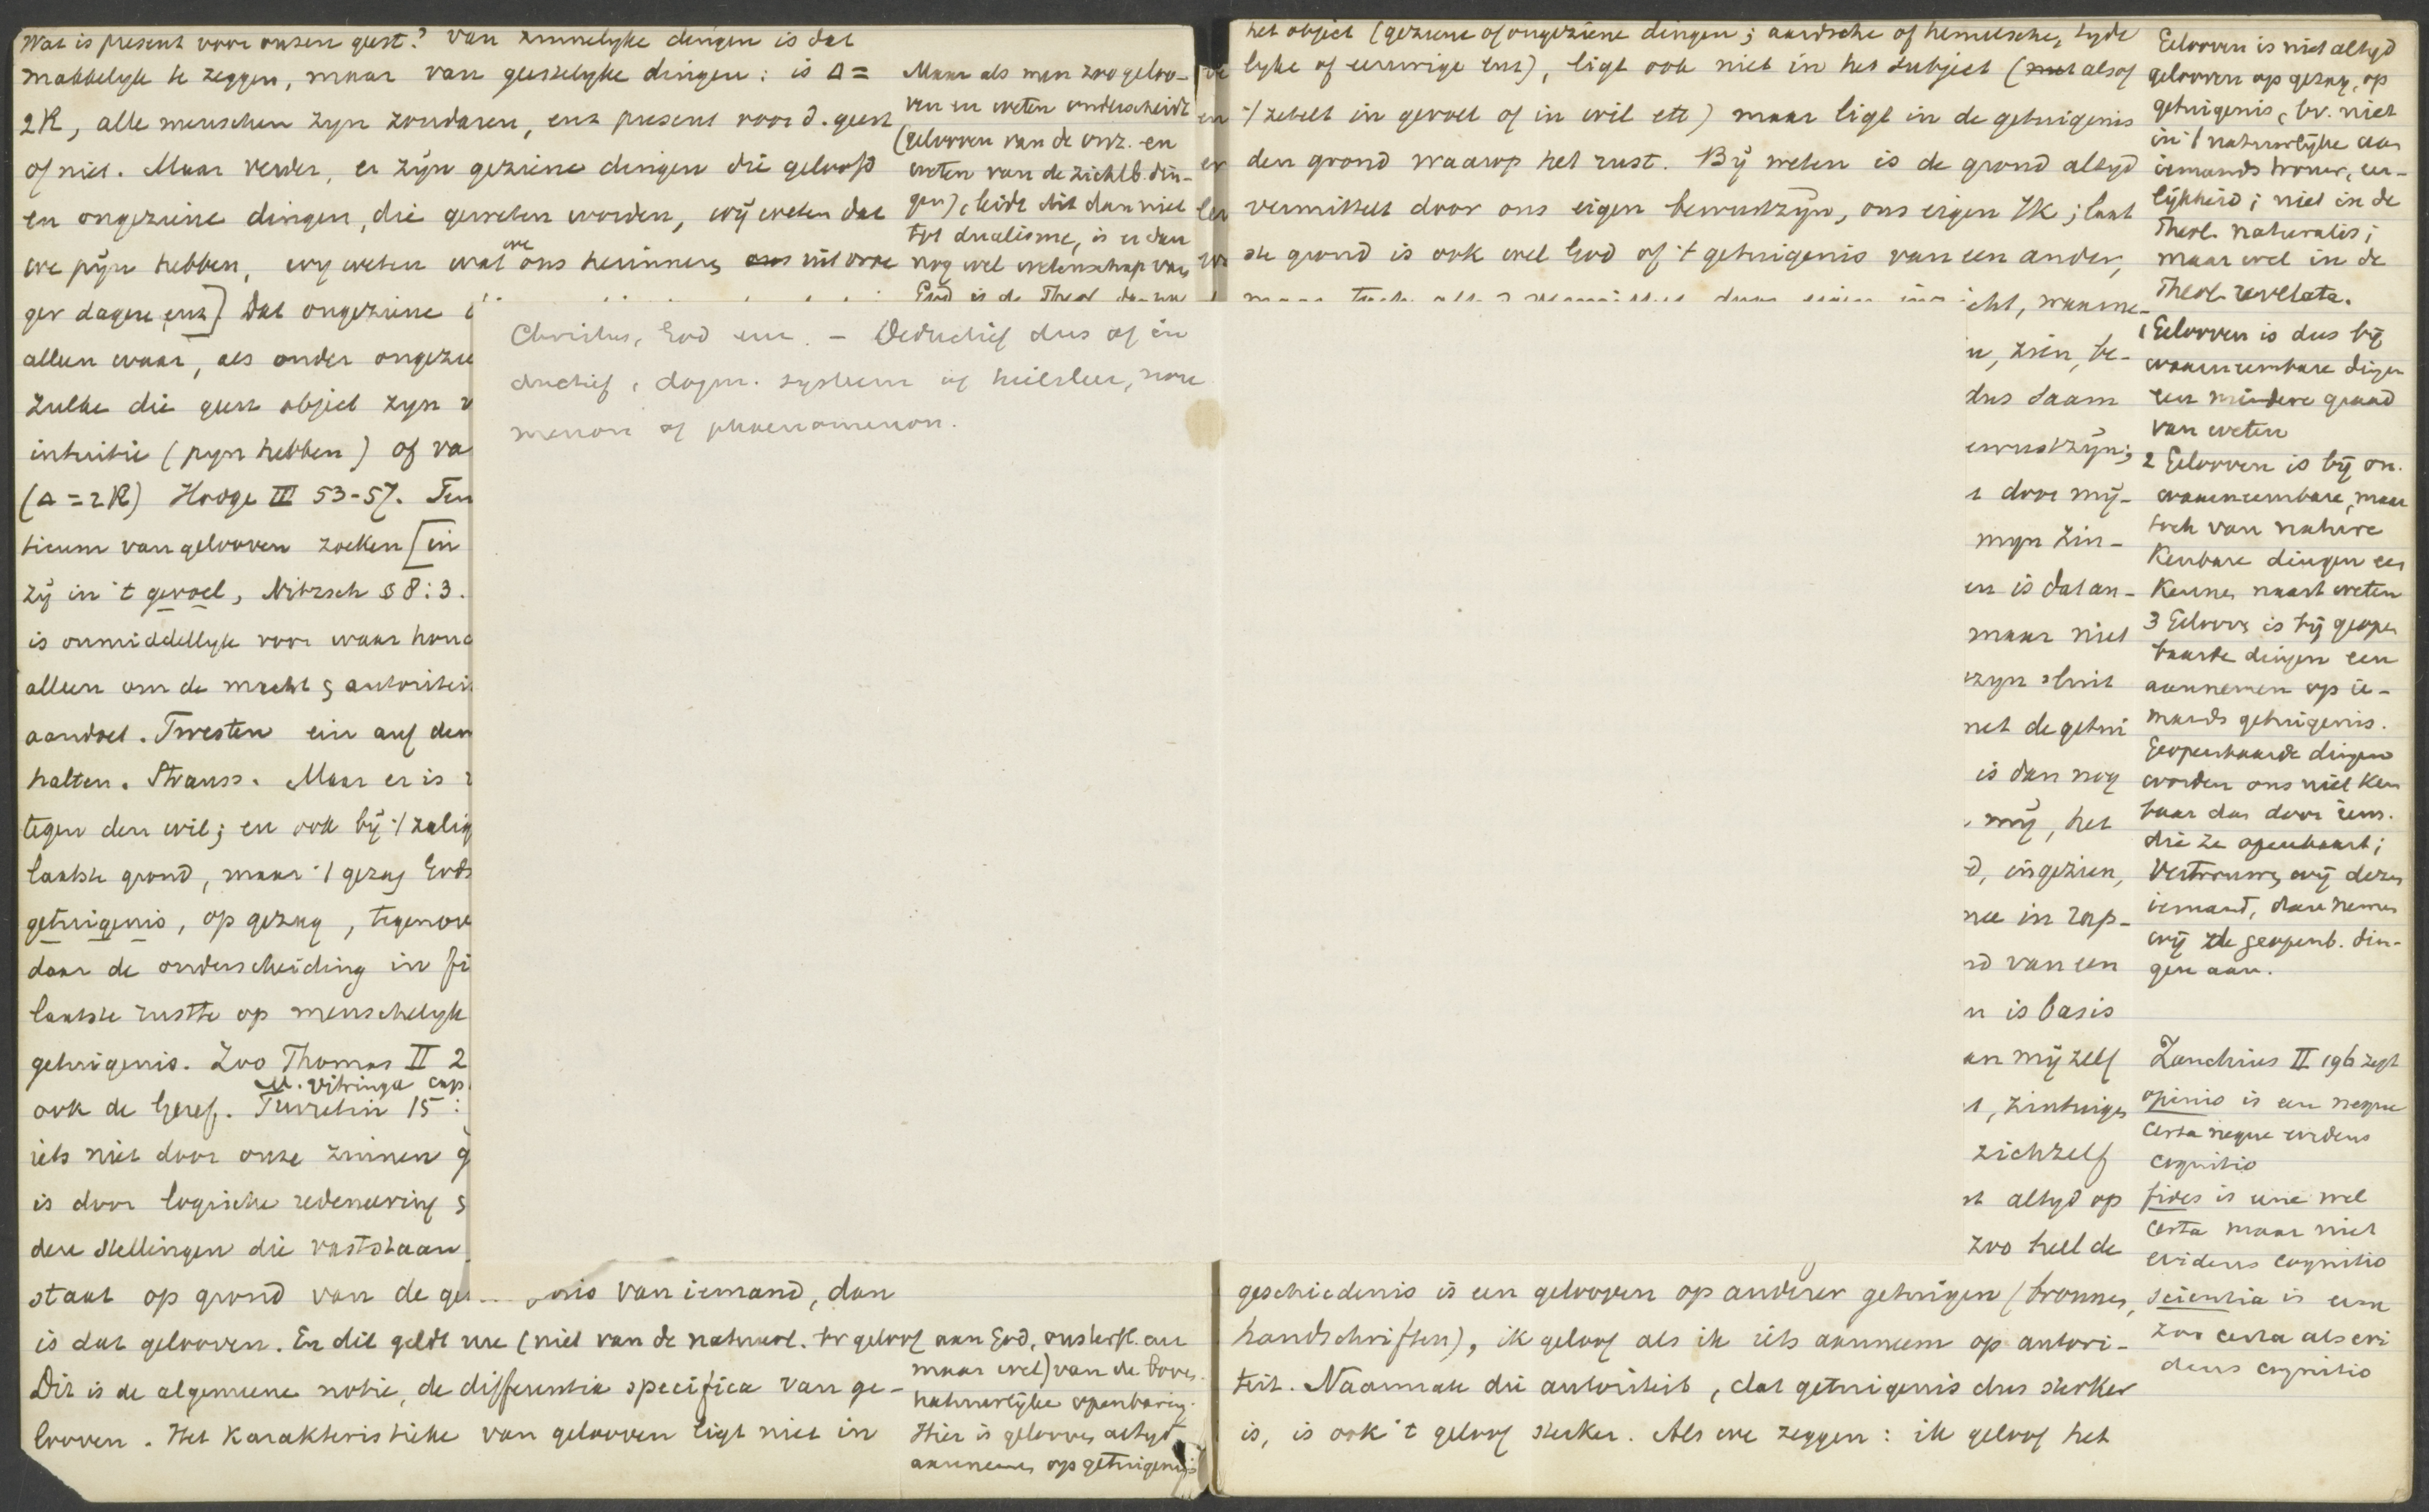 Wat is present voor onzen geest? Van zinnelyke dingen is dat
makkelyk te zeggen, maar van geestelyke dingen: is Δ =
2R, alle menschen zyn zondaren, enz present voor d. geest
of niet. Maar verder, er zijn geziene dingen die geloofd
en ongeziene dingen, die geweten worden, wij weten dat
we pijn hebben, wy weten wat we ons herinneren uit vroe
ger dagen enz] Dat ongeziene
alleen waar, als onder ongezie
zulke die geen object zyn v
intuitie (pyn hebben) of va
(Δ = 2R) Hodge III 53-57. Ten
ticum van gelooven zoeken [in
zij in 't gevoel, Nitzsch § 8:3.
is onmiddellyk voor waar houd
alleen om de macht & autoriteit
aandoet. Twesten ein auf dem
halten. Strauss. Maar er is
tegen den wil; en ook bij 't zalig
laatste grond, maar 't gezag Gods
getuigenis, op gezag, tegenove
daar de onderscheiding in fi
laatste rustte op menschelyk
getuigenis. Zoo Thomas II 2
M. Vitringa cap.
ook de Geref. Turretin 15:
iets niet door onze zinnen g
is door logische redeneering &
dere stellingen die vaststaan
staat op grond van de get nis van iemand, dan
is dat gelooven. En dit geldt
Dit is de algemeene notie, de differentia specifica van ge-
looven. Het karakteristieke van gelooven ligt niet in
Maar als men zoo geloo-
ven en weten onderscheidt
(gelooven van de onz. en
weten van de zichtb. din-
gen), leidt dit dan niet
tot dualisme, is er dan
nog wel wetenschap van
God is de Theol
Christus, God enz. - Deductief dus of in
ductief, dogm. systeem of heilsleer, nou
menon of phaenomenon.
(niet van de natuurl. bv geloof aan God, onsterfl. enz
maar wel) van de boven
natuurlijke openbaring.
Hier is gelooven altyd
aannemen op getuigenis
het object (geziene of ongeziene dingen; aardsche of hemelsche, tyde
lyke of eeuwige enz), ligt ook niet in het subject (alsof
't zetelt in gevoel of in wil etc) maar ligt in de getuigenis
den grond waarop het rust. Bij weten is de grond altyd
vermittelt door ons eigen bewustzijn, ons eigen Ik; laat
ste grond is ook wel God of 't getuigenis van een ander,
cht, waarne-
n, zien, be-
dus saam
ewustzijn;
t door mij-
myn zin-
en is dat an-
maar niet
zyn sluit
net de getui
is dan nog
, mij, het
d, ingezien,
nee in rap-
nd van een
n is basis
an mij zelf
t, zintuigen
zichzelf
st altyd op
zoo heel de
geschiedenis is een gelooven op anderer getuigen (bronnen,
handschriften), ik geloof als ik iets aanneem op autori-
teit. Naarmate die autoriteit, dat getuigenis dus sterker
is, is ook 't geloof sterker. Als we zeggen: ik geloof het
Gelooven is niet altyd
gelooven op gezag, op
getuigenis, bv. niet
in 't natuurlijke aan
iemands trouw, eer-
lijkheid; niet in de
Theol. naturalis;
maar wel in de
Theol. revelata.
1 Gelooven is dus bij
waarneembare dingen
een mindere graad
van weten
2 Gelooven is bij on-
waarneembare, maar
toch van nature
kenbare dingen een
kennen naast weten
3 Gelooven is bij geopen
baarde dingen een
aannemen op ie-
mands getuigenis.
Geopenbaarde dingen
worden ons niet ken
baar dan door iem.
die ze openbaart;
vertrouwen wij dezen
iemand, dan nemen
wij de geopenb. din-
gen aan.
Zanchius II 196 zegt
opinio is een neque
certa neque evidens
cognitio
fides is eene wel
certa maar niet
evidens cognitio
scientia is eene
zoo certa als evi
dens cognitio